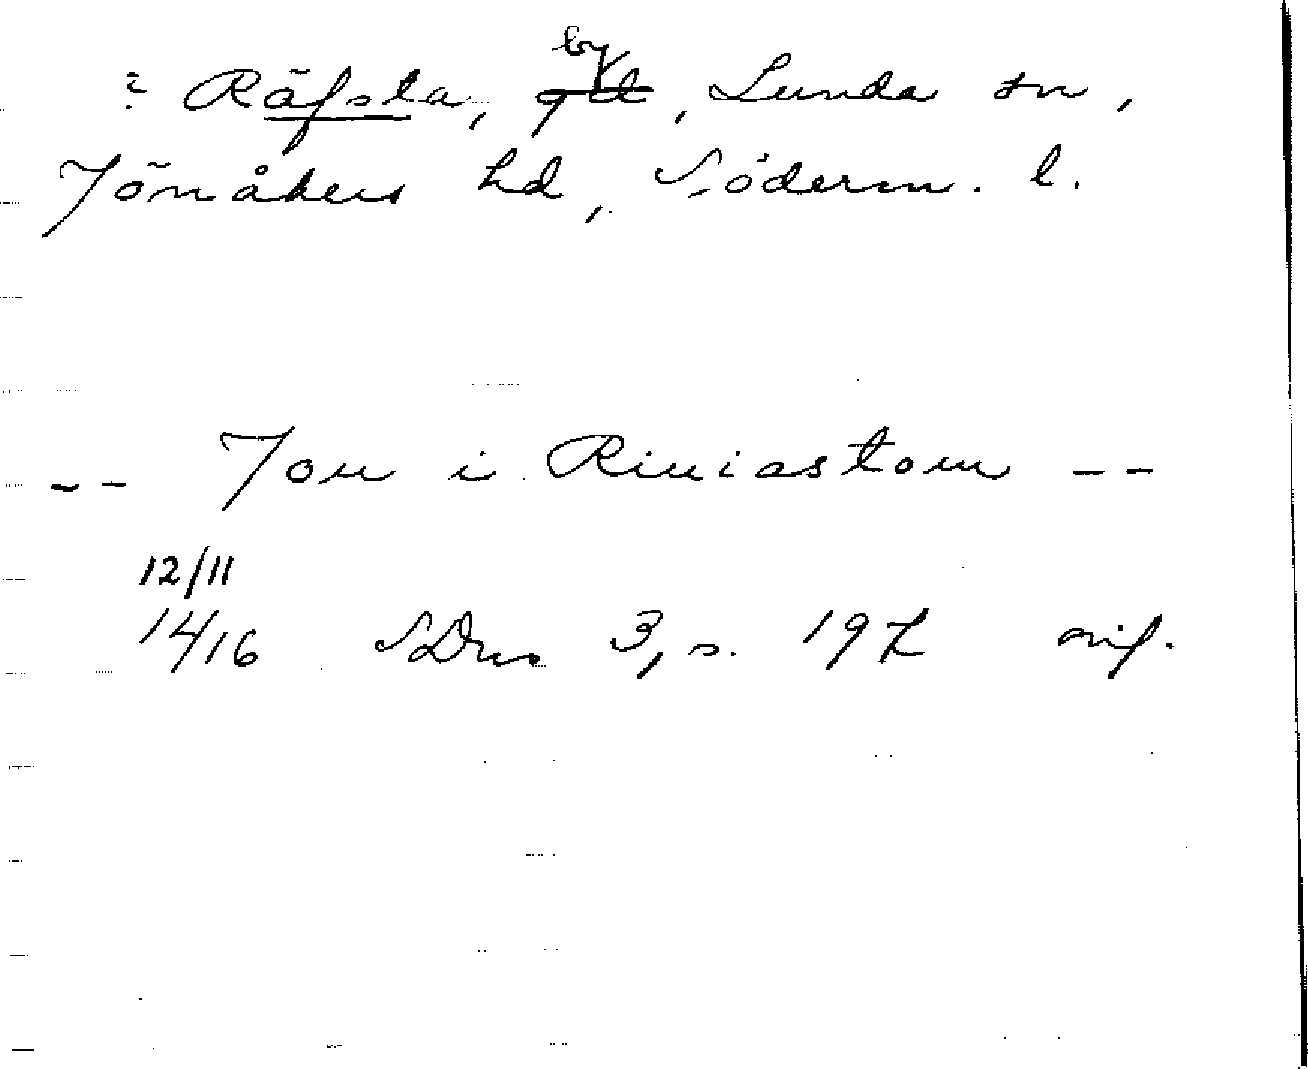 ? Räfsta, by, Lunda sn,
Jönåkers hd, Söderm. l.
-- Jon i Riuiastom --
12/11
1416 SDns 3, s. 197